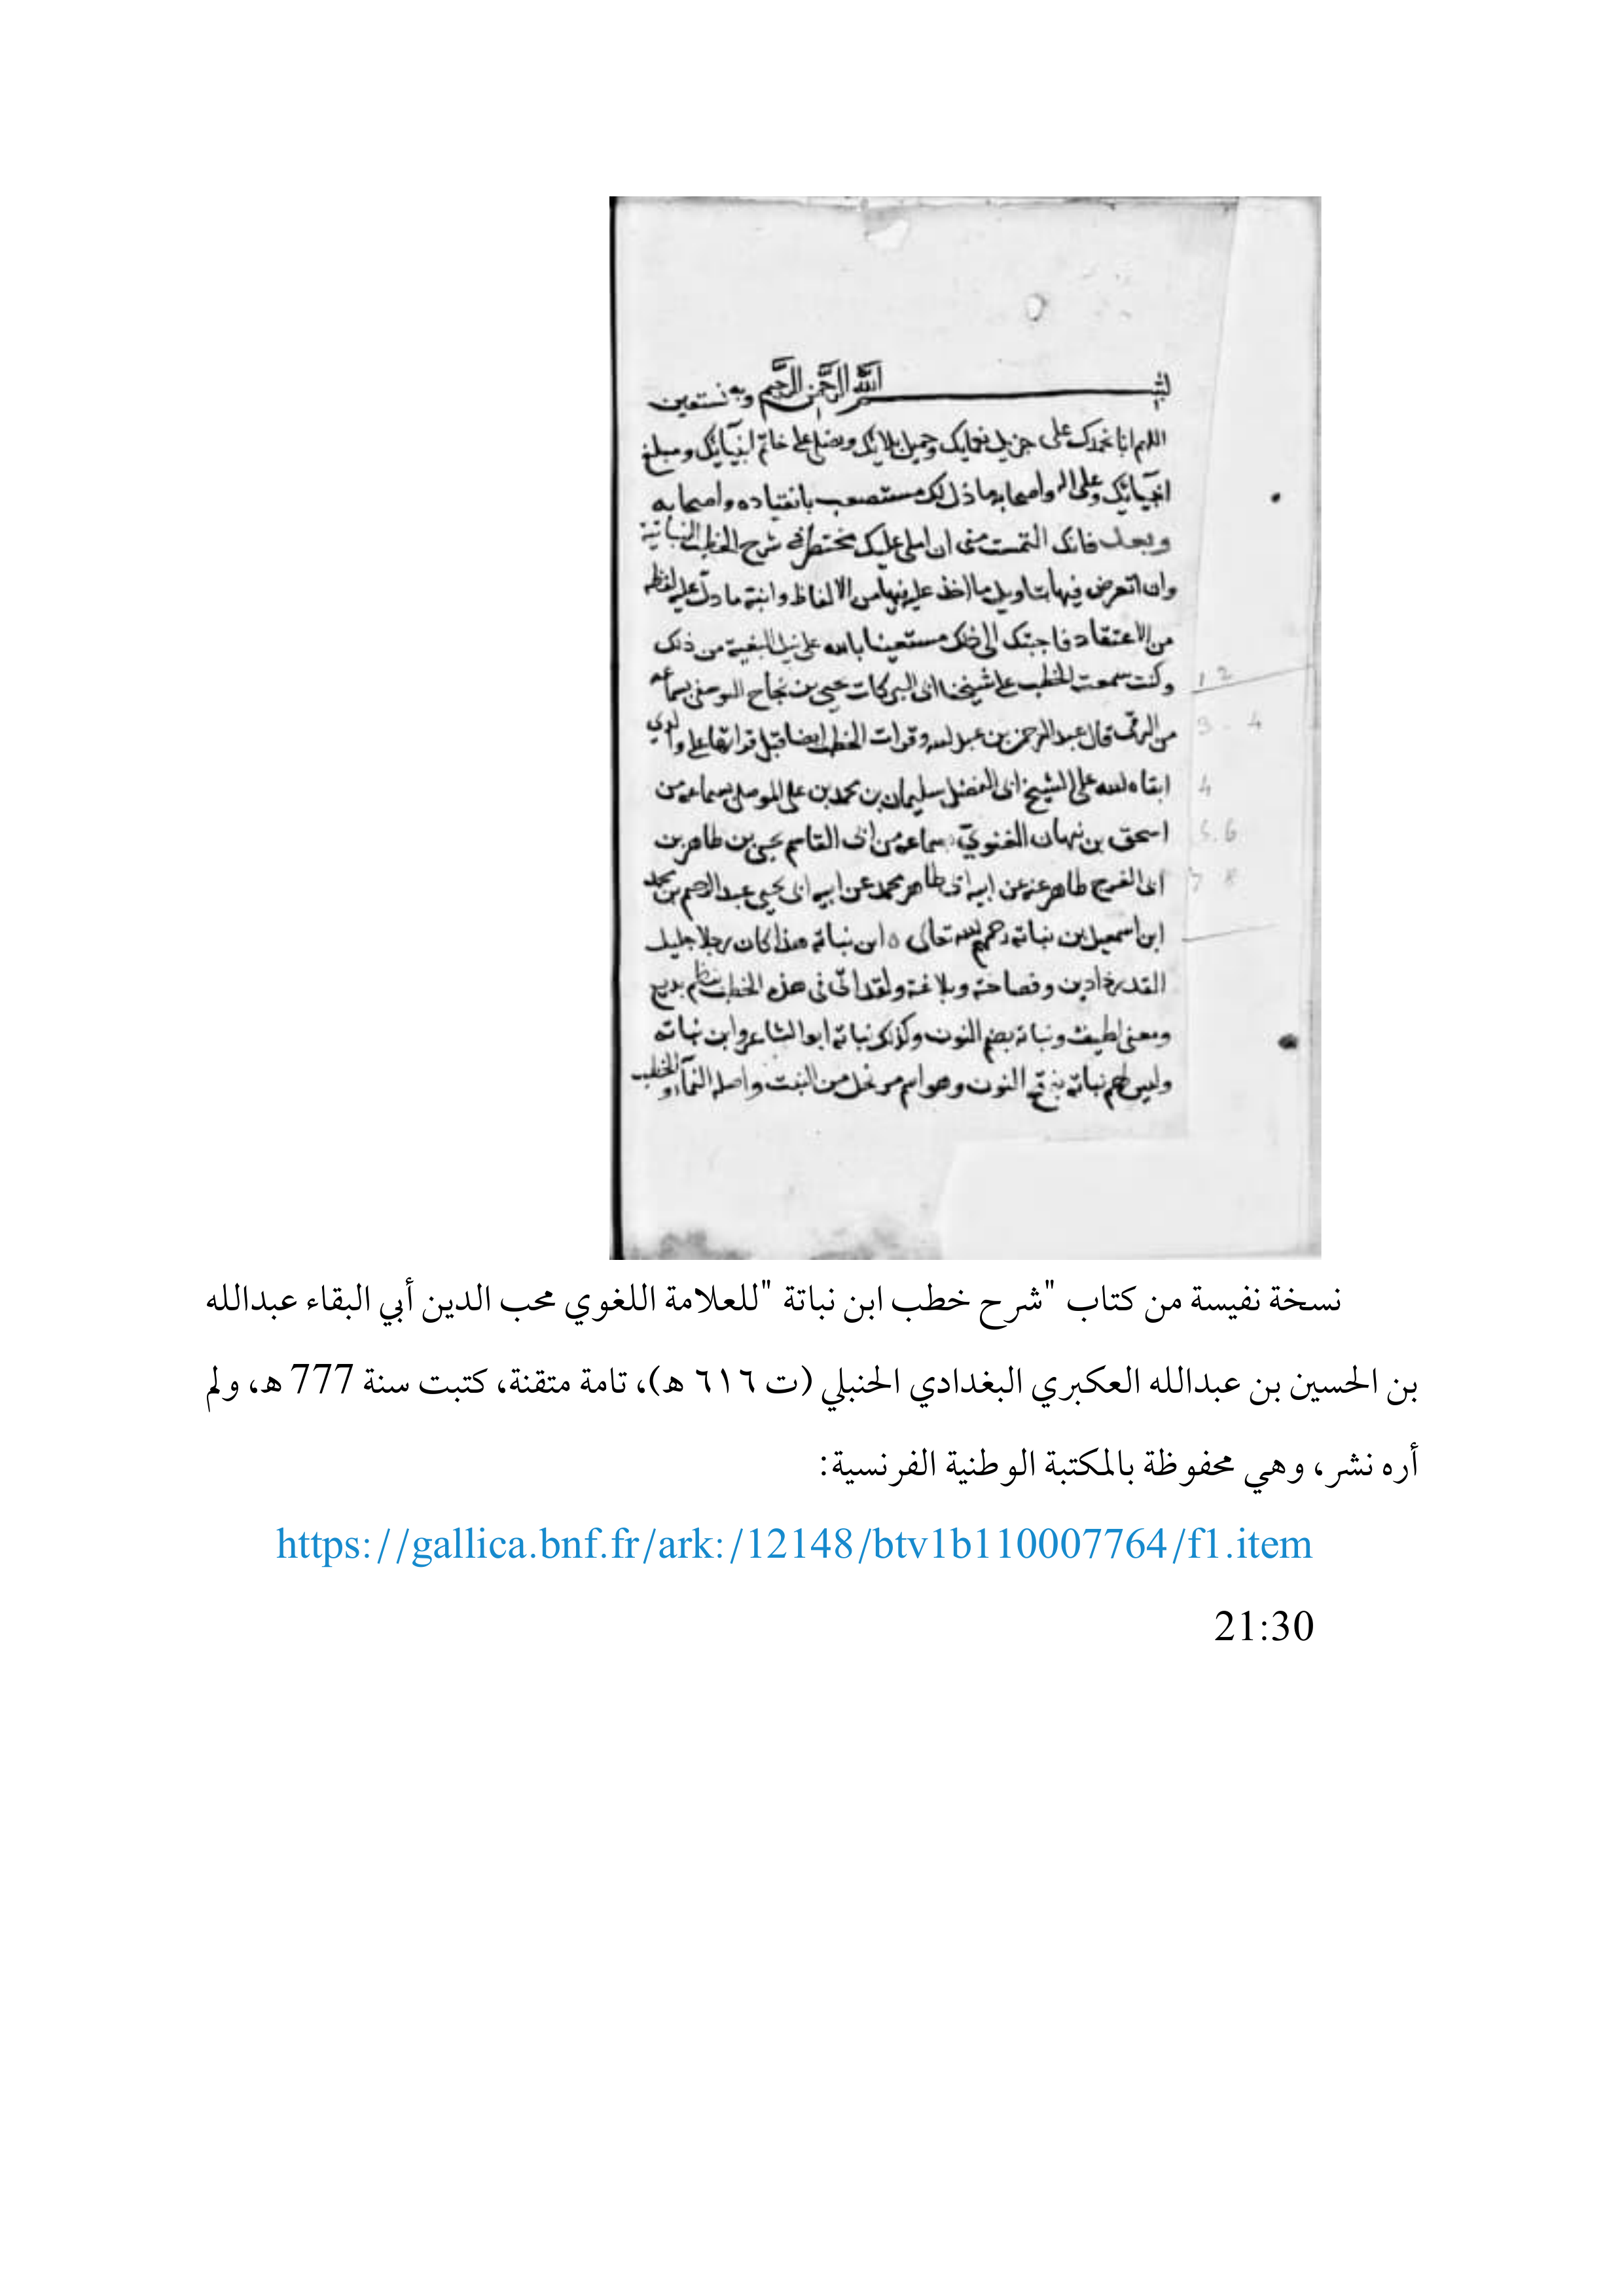 بسم الله الرحمن الرحيم وبه نستعين
اللهم انا نحمدك على جزيل نعمايك وجميل بلايك ونصلي على خاتم انبيائك ومبلغ
انبيائك وعلى اله واصحابه ما ذل لك مستصعب بانقياده واصحابه
وبعد فانك التمست مني ان املي عليك مختصرا في شرح الخطب النباتية
وان اتعرض فيها تاويل ما اخذ عليه فيها من الالفاظ وانبه ما دل عليه لفظه
من الاعتقاد فاجبتك الى ذلك مستعينا بالله على نيل البغية من ذلك
وكنت سمعت الخطب على شيخنا ابي البركات يحيى بن نجاح الموصلي بسماعه
من الرقي قال عبد الرحمن بن عبد لله وقرات الخطب ايضا قبل قراتها على والدي
ابقاه لله على الشيخ ابي الفضل سليمان بن محمد بن علي الموصلي بسماعه من
اسحق بن نبهان الغنوي بسماعه من ابي القاسم يحيى بن طاهر بن
ابي الفرج طاهر عنه عن ابيه ابي طاهر محمد عن ابيه ابي يحيى عبد الرحيم بن محمد
ابن اسمعيل بن نباته رحمهم لله تعالى ابن نباته هذا كان رجلا جليل
القدر ذا دين وفصاحة وبلاغة ولقد اتى في هذه الخطب بنظم بديع
ومعنى لطيف ونباتة بضم النون وكذلك نباتة ابو الشاعر وابن نباته
وليس لهم نباتة بفتح النون وهو اسم مرتجل من النبت واصله النماء والخطب
1 2
3 - 4
4
5.6
7 8
نسخة نفيسة من كتاب "شرح خطب ابن نباتة "للعلامة اللغوي محب الدين أبي البقاء عبدالله
بن الحسين بن عبدالله العكبري البغدادي الحنبلي (ت ٦١٦ هـ)، تامة متقنة، كتبت سنة 777 هـ، ولم
أره نشر، وهي محفوظة بالمكتبة الوطنية الفرنسية:
https://gallica.bnf.fr/ark:/12148/btv1b110007764/f1.item
21:30